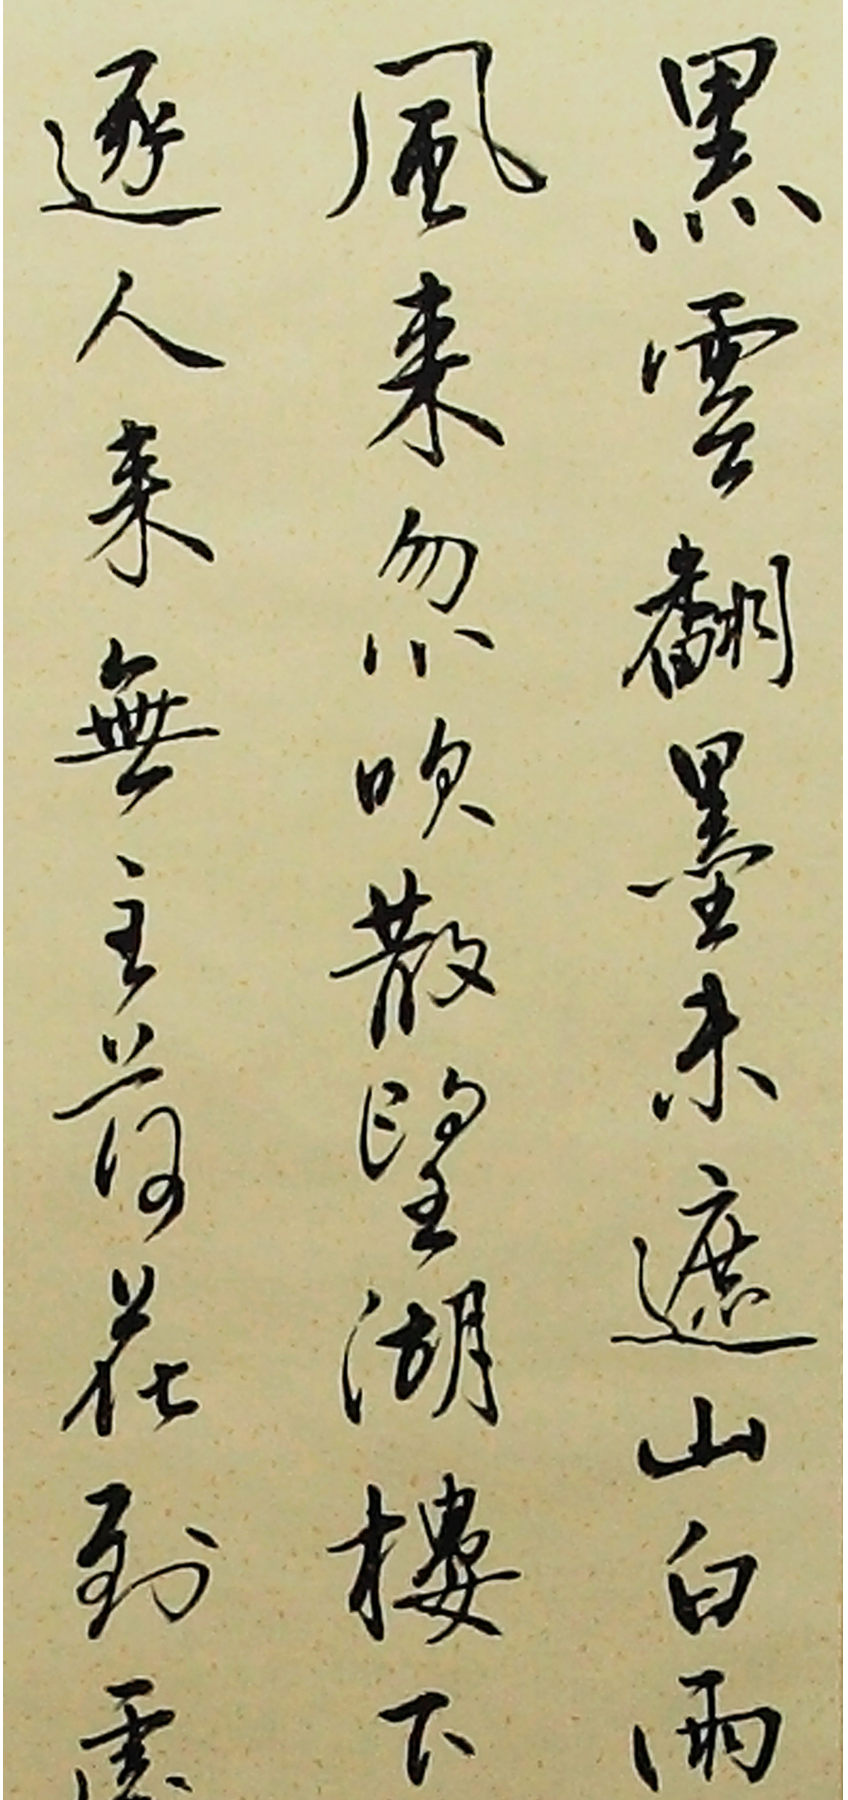 黑雲翻墨未遮山白雨
風来忽吹散望湖樓下
逐人来無主荷花到處